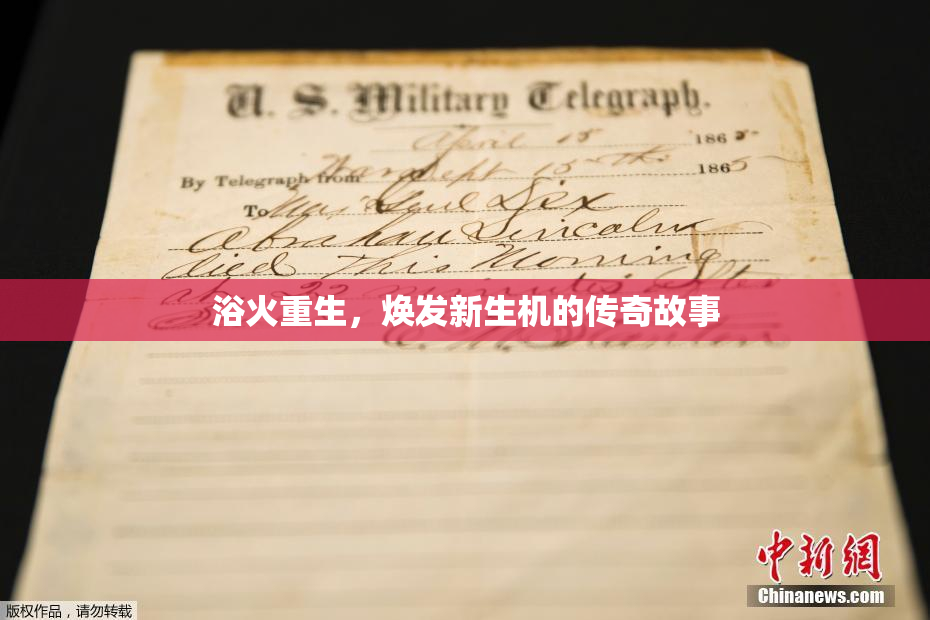 U. S. Military Telegraph.
April 15 1865
By Telegraph from War Dept 15th 1865
To Maj Genl Dix
Abraham Lincoln
died This Morning
at 22 minutes after
浴火重生，焕发新生机的传奇故事
E. M. Stanton
中新网
Chinanews.com
版权作品，请勿转载